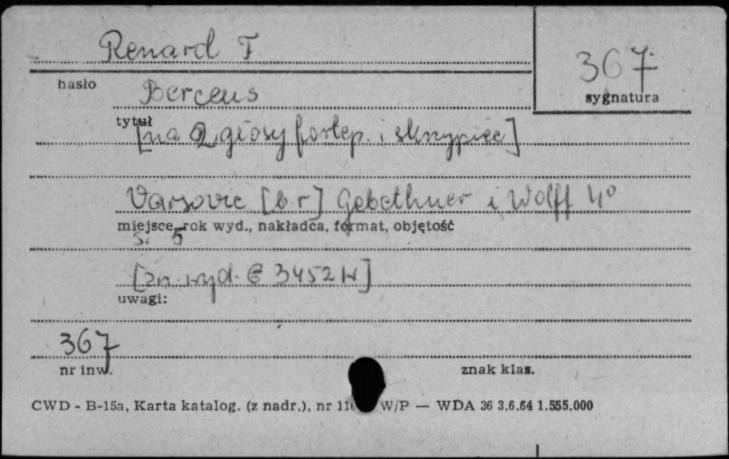 Renard F
367
hasło
sygnatura
Berceus
tytuł
[na 2 głosy fortep. i skrzypiec]
Varsovie [b r] Gebethner i Wolff 4°
miejsce, rok wyd., nakładca, format, objętość
s. 5
[zn. wyd. G 3452 W]
uwagi:
367
nr inw.
znak klas.
CWD - B-15a, Karta katalog. (z nadr.), nr W/P — WDA 36 3.6.64 1.555.000